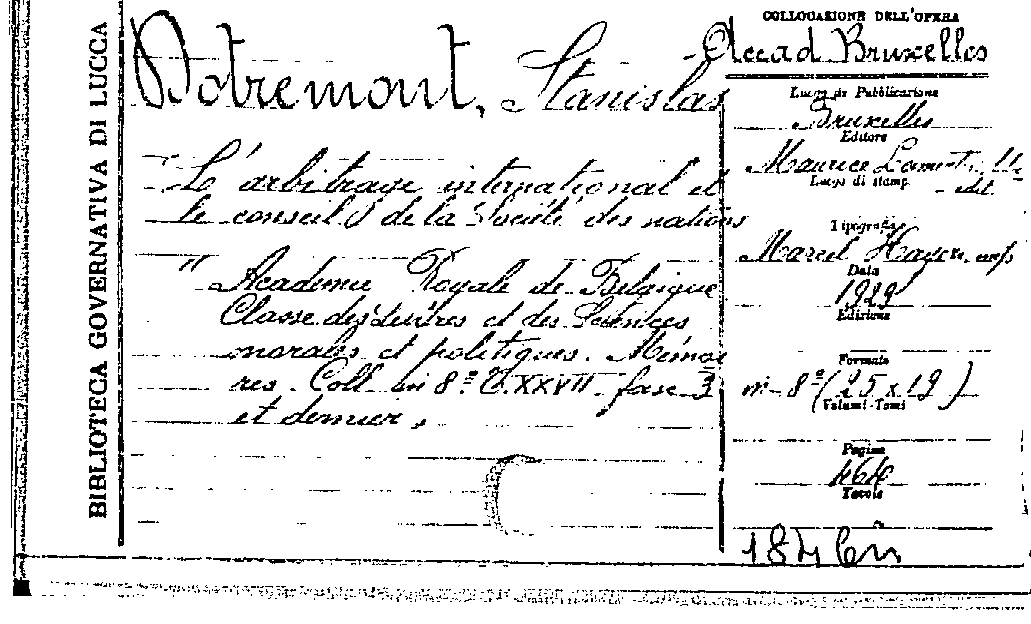 BIBLIOTECA GOVERNATIVA DI LUCCA
Dotremont, Stanislas
L'arbitrage international et
le conseil de la Société des nations
" Academie Royale de Belgique
Classe des Lettres et des Sciences
morales et politiques. Mémoi
res. Coll in 8º T. XXVII. fasc 3
et dernier.
COLLOCAZIONE DELL'OPERA
Accad Bruxelles
Luogo di Pubblicazione
Bruxelles
Editore
Maurice
Luogo di stamp.
edit
Tipografia
Marcel Hayez, imp
Data
1929
Edizione
Formato
in-8º (25 x 19)
Volumi-Tomi
Pagine
464
Tavole